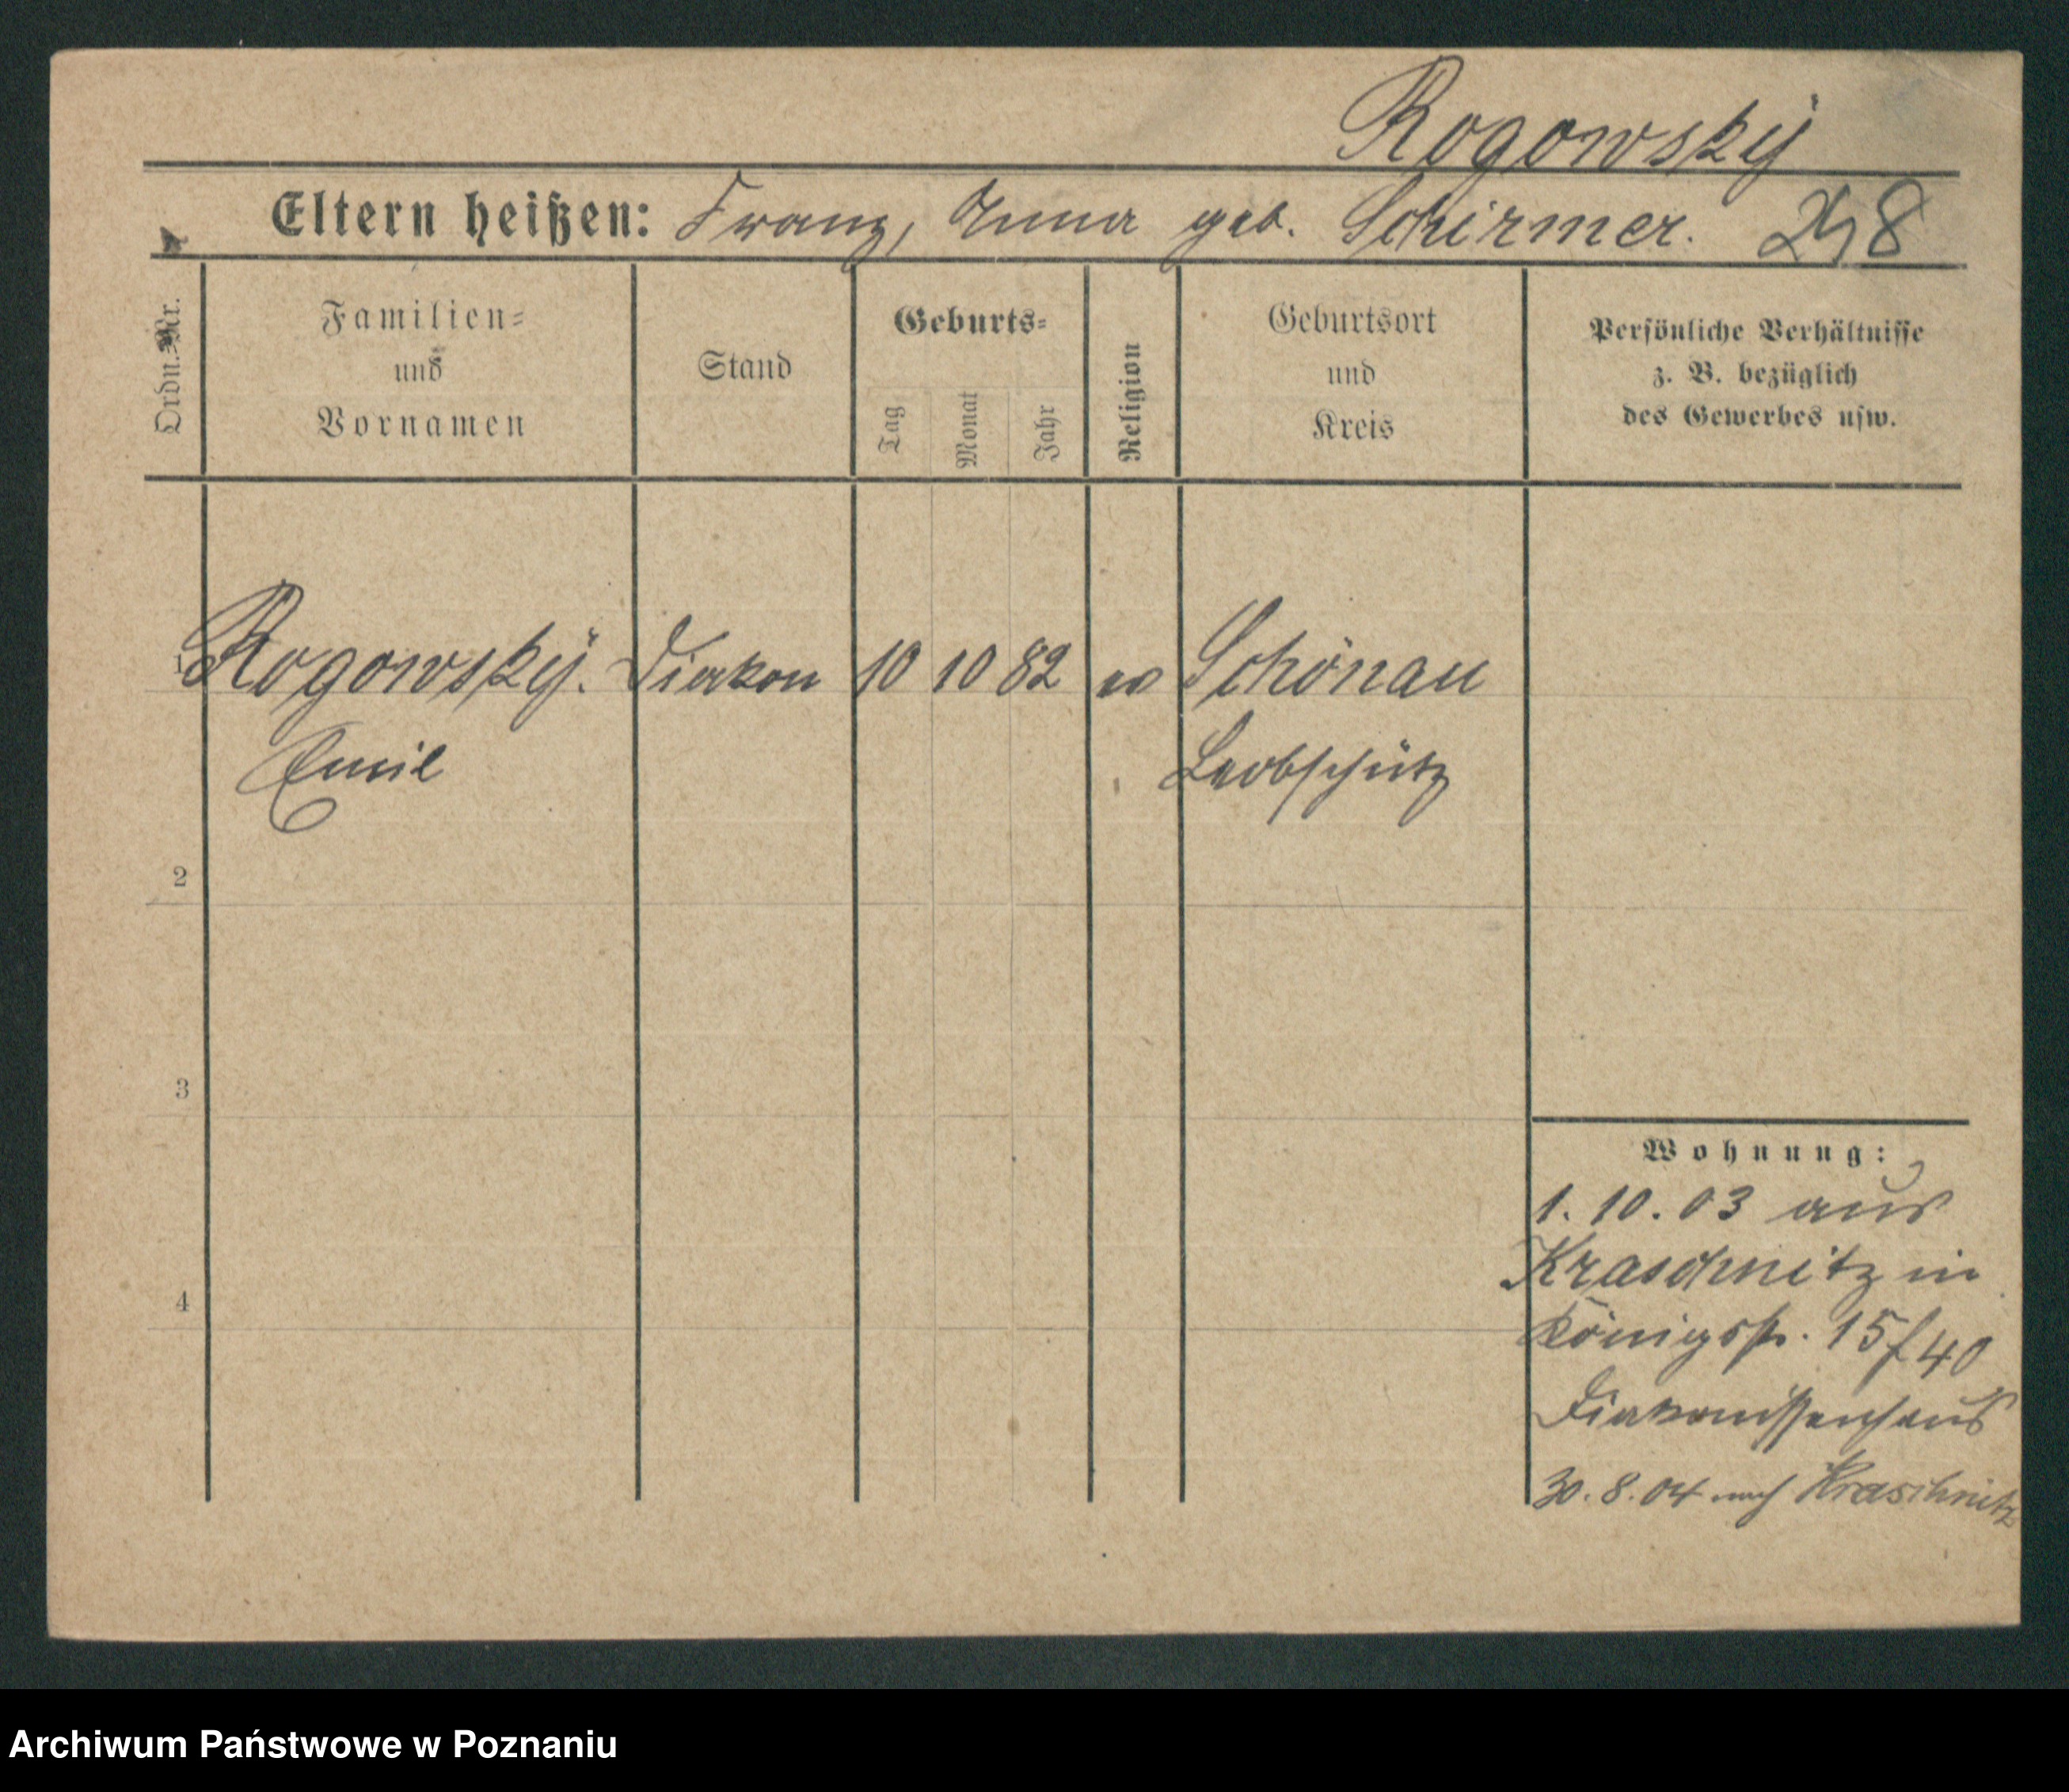 Rogowskÿ
Eltern heißen: Franz, Anna geb. Schirmer. 8
Ordn.-Nr.
Familien-
und
Vornamen
Stand
Geburts-
Tag
Monat
Jahr
Religion
Geburtsort
und
Kreis
Persönliche Verhältnisse
z. B. bezüglich
des Gewerbes usw.
1 Rogowskÿ. Diakon 10 10 82 ev Schönau
Emil Leobschütz
2
3
4
Wohnung:
1. 10. 03 aus
Kraschnitz in
Königsstr. 15/40
Diakonissenhaus
30. 8. 04 nach Kraschnitz
Archiwum Państwowe w Poznaniu